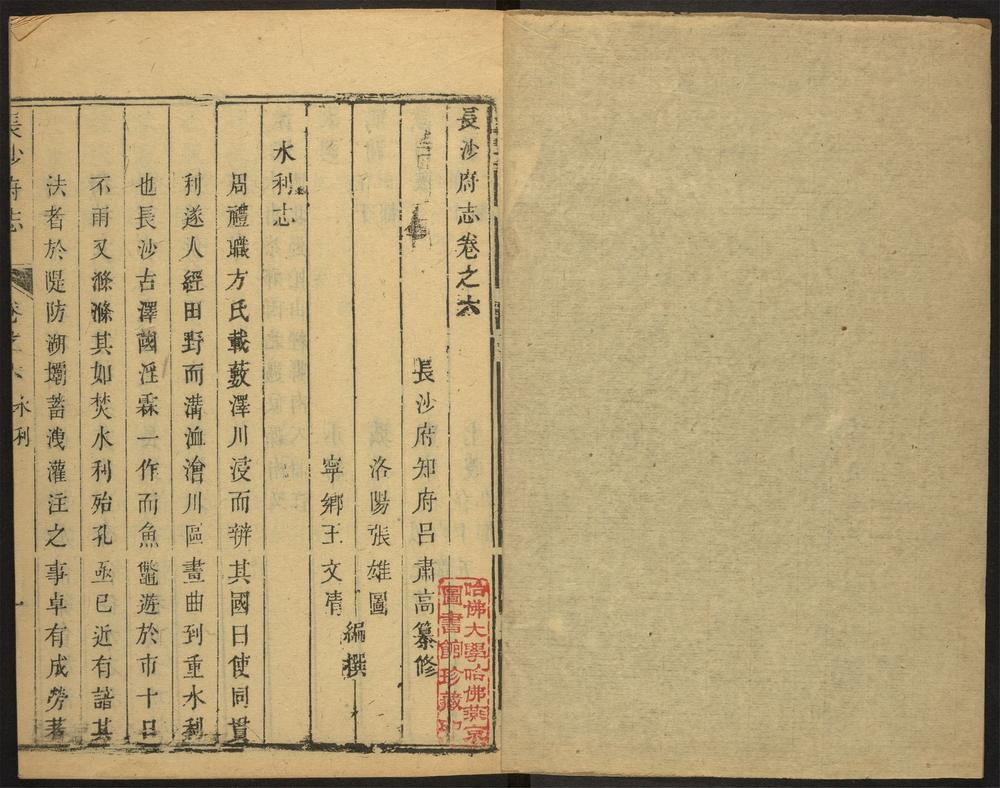 長沙府志卷之六
長沙府知府呂肅高纂修
洛陽張雄圖
寧鄉王文清
編撰
水利志
周禮職方氏載藪澤川浸而辨其國曰使同貫
利遂人經田野而溝洫澮川區畫曲到重水利
也長沙古澤國淫霖一作而魚鼈遊於市十日
不雨又滌滌其如焚水利殆孔亟已近有譜其
法者於隄防湖壩蓄洩灌注之事卓有成勞著
長沙府志
卷之六
水利
一
哈佛大學哈佛燕京
圖書館珍藏印